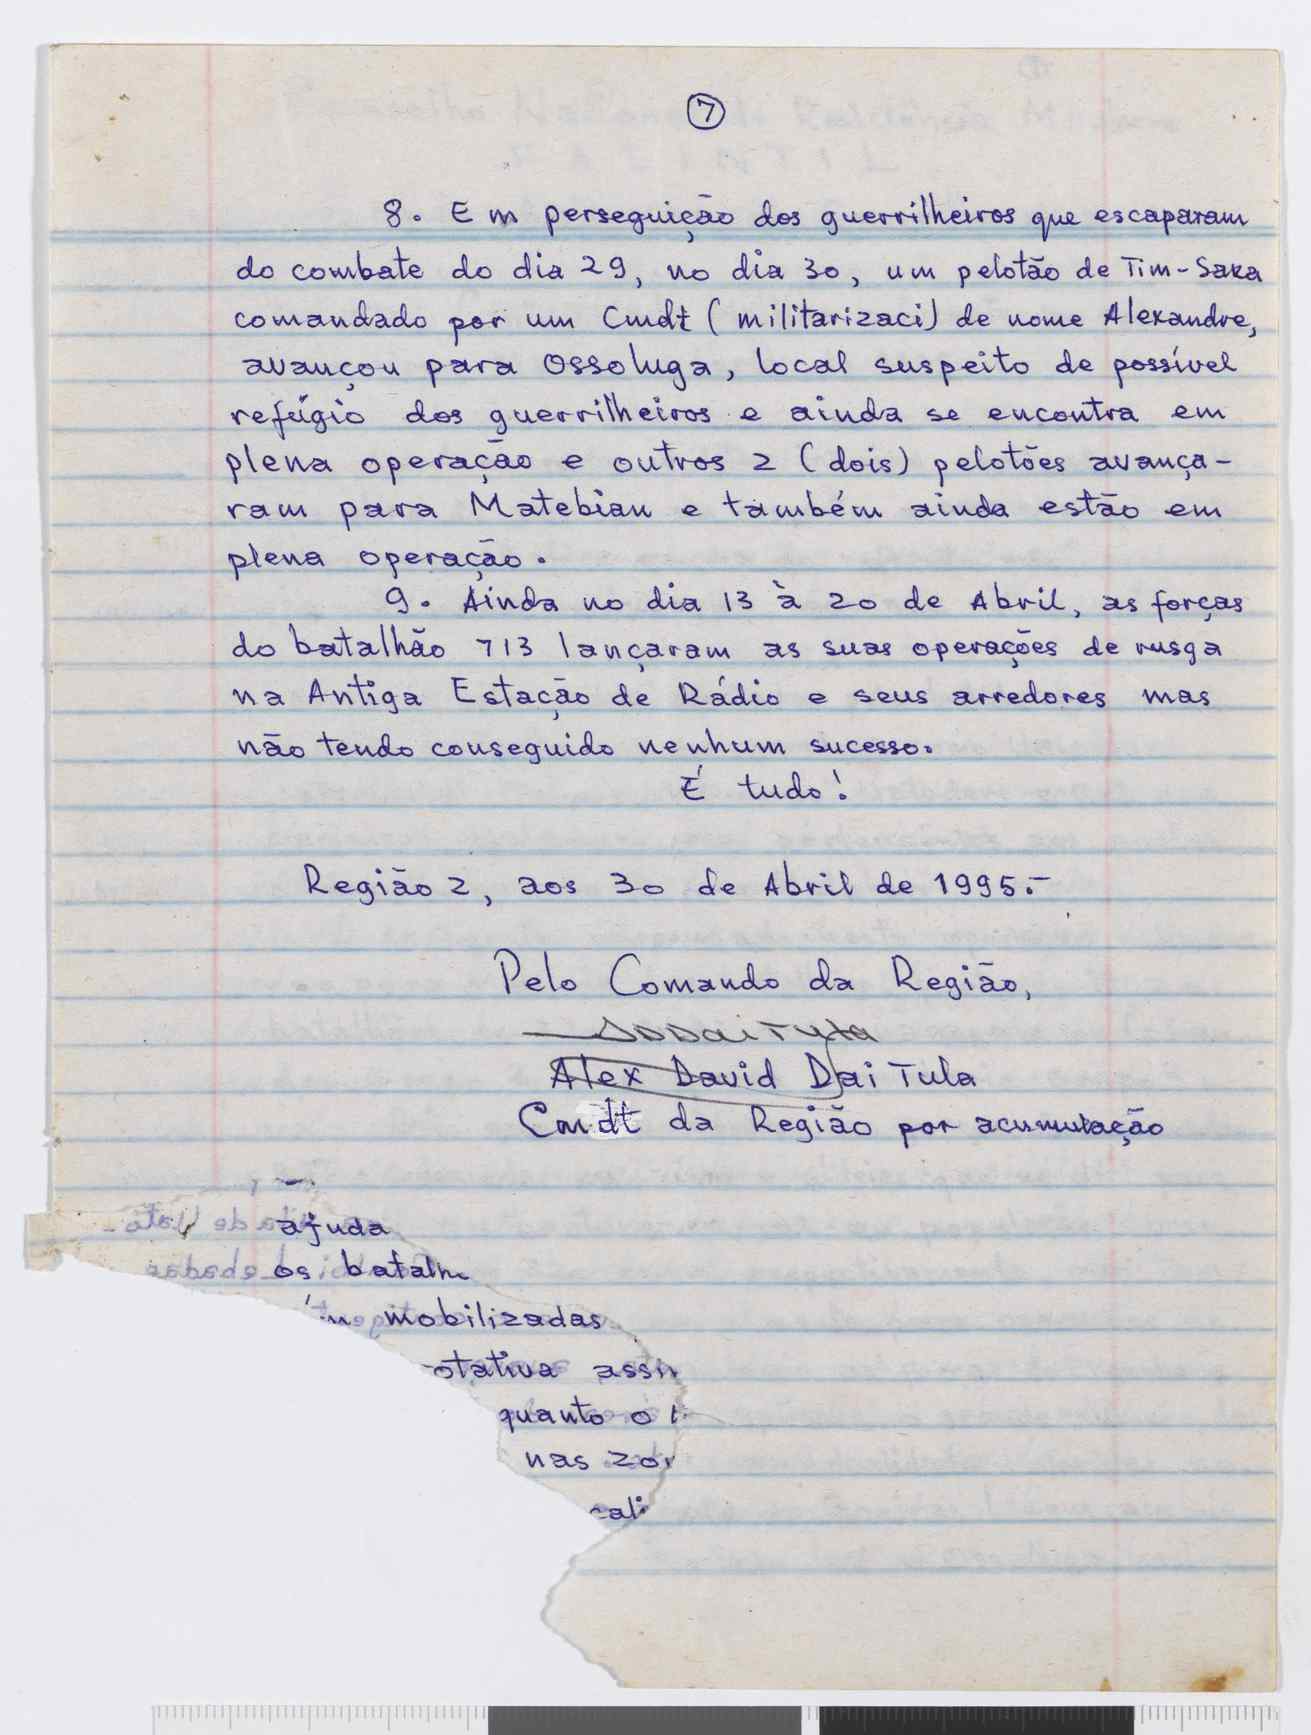 7
8. Em perseguição dos guerrilheiros que escaparam
do combate do dia 29, no dia 30, um pelotão de Tim-Saka
comandado por um Cmdt (militarizaci) de nome Alexandre,
avançou para Ossoluga, local suspeito de possível
refúgio dos guerrilheiros e ainda se encontra em
plena operação e outros 2 (dois) pelotões avança-
ram para Matebian e também ainda estão em
plena operação.
9. Ainda no dia 13 à 20 de Abril, as forças
do batalhão 713 lançaram as suas operações de rusga
na Antiga Estação de Rádio e seus arredores mas
não tendo conseguido nenhum sucesso.
É tudo!
Região 2, aos 30 de Abril de 1995.-
Pelo Comando da Região,
Alex David DaiTula
Cmdt da Região por acumulação
ajuda
os
mobilizadas
quanto o
nas